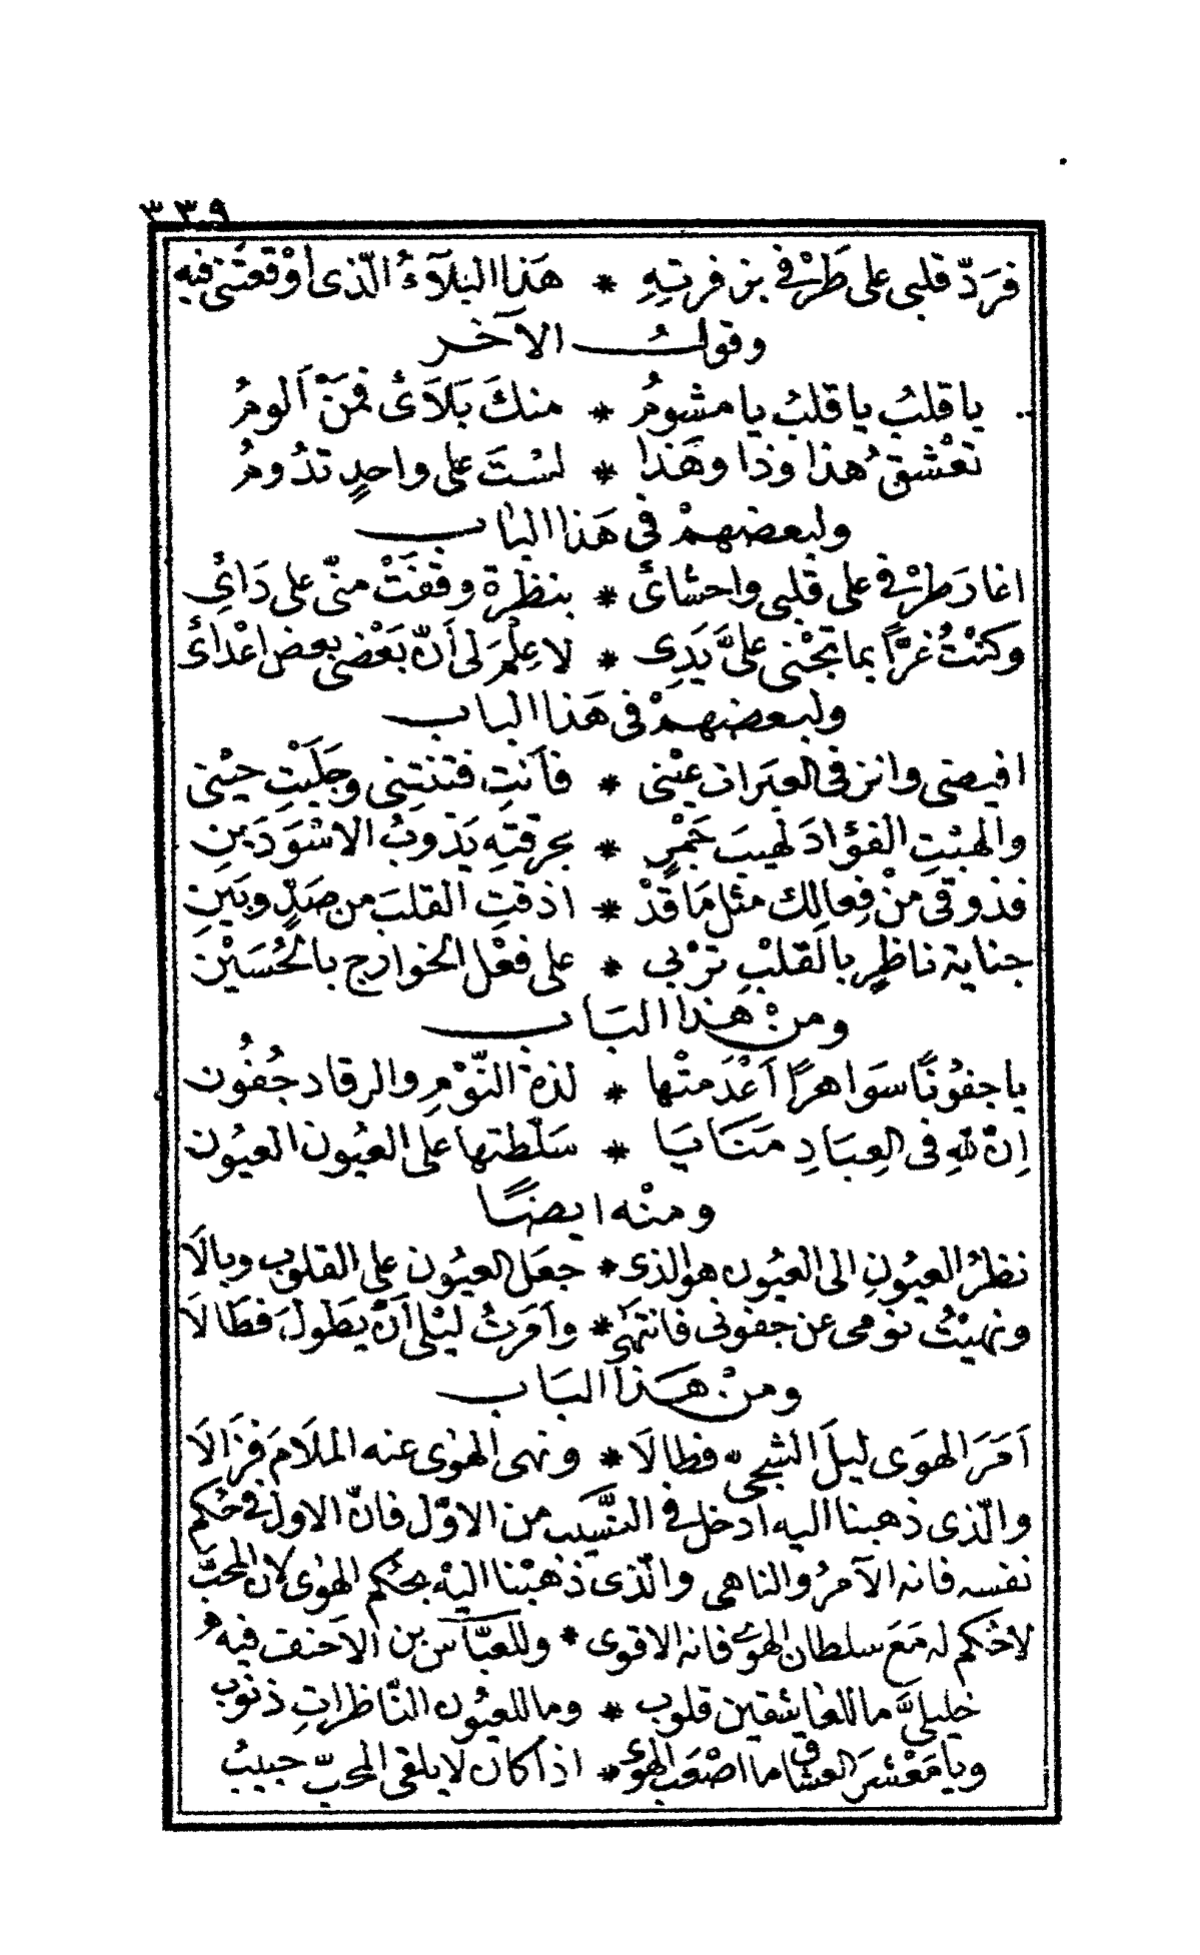 ٣٣٩
فَرَدَّ قلبى على طَرْفى بن فرتهِ * هَذا البَلآءُ الّذى أوْقعتَنى فيه
وقولُ الآخر
يا قلبُ يا قلبُ يا مشومُ * منكَ بَلَآئى فمَنْ اَلومُ
تعْشقُ هذا وذا وهَذا * لسْتَ على واحدٍ تدُومُ
ولبعضهمْ فى هَذا الباب
اغار طرْفى على قلبى واحشائى * بنظرة وقفَتْ منّى على دَائِى
وكنْتُ غرًّا بما تجْنى علىَّ يَدِى * لا عِلْمَ لى أنّ بَعْضى بعض اعْدائى
ولبعضهمْ فى هَذا الباب
افيضى وانزفى العبَرات عيْنى * فاَنتِ فتنتِنى وجلَبْتِ حيْنى
والهبْتِ الفؤادَ لهيبَ جَمْرٍ * بحرقتِه يَذوبُ الاسْوَدَينِ
فذوقى منْ فِعالِك مثل مَا قدْ * اذقتِ القلبَ من صَدٍّ وبَينِ
جناية ناظرٍ بالقلبْ تزْبى * على فعْل الخوارج بالحُسَيْن
ومنْ هذا البَاب
يا جفوُنًا سَواهرًا اَعْدَمتْها * لذة النّوْمِ والرقاد جُفُون
اِنّ للهِ فى العِبَادِ مَنَايَا * سَلّطتها على العيُون العيُون
ومنْه ايضًا
نظرُ العيُونِ الى العيُون هو الذى * جعَل العيُون على القلوب وبالَا
ونهيْتُ نومى عن جفونى فانتهَى * واَمَرتُ ليْلى أنْ يَطولَ فطَالَا
ومنْ هَذا البَاب
اَمَرَ الهوَى ليلَ الشجىّ فطالَا * ونهى الهوٰى عنه الملَامَ فزَالَا
والّذى ذهبنا اليه ادخل فى النَّسيب من الاوّل فانّ الاول فى حُكم
نفسه فانه الآمرُ والناهى والّذى ذهبْنا اليْه بحُكم الهوٰى لان المحبَّ
لا حُكم له مَعَ سلطان الهوَى فانه الاقوى * وللعبّاس بن الاَحنف فيهُ
خليلىَّ ما للعاشقين قلوب * وما للعيُون النّاظراتِ ذنوُب
ويا مَعْشرَ العشاق ما اصْعَب الهوَى * اذا كان لا يلقى المحبّ حبيبُ